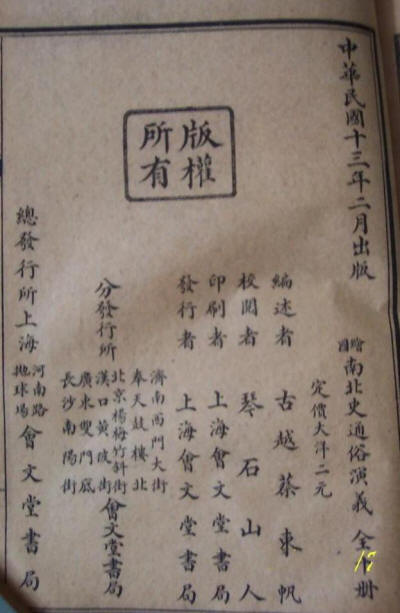 中華民國十三年二月出版
版權
所有
繪圖南北史通俗演義 全 冊
定價大洋二元
編述者 古越蔡東帆
校閱者 琴石山人
印刷者 上海會文堂書局
發行者 上海會文堂書局
分發行所
濟南西門大街
奉天鼓樓北
北京楊梅竹斜街
漢口黃陂街
廣東雙門底
長沙南陽街
會文堂書局
總發行所上海
河南路
拋球場
會文堂書局